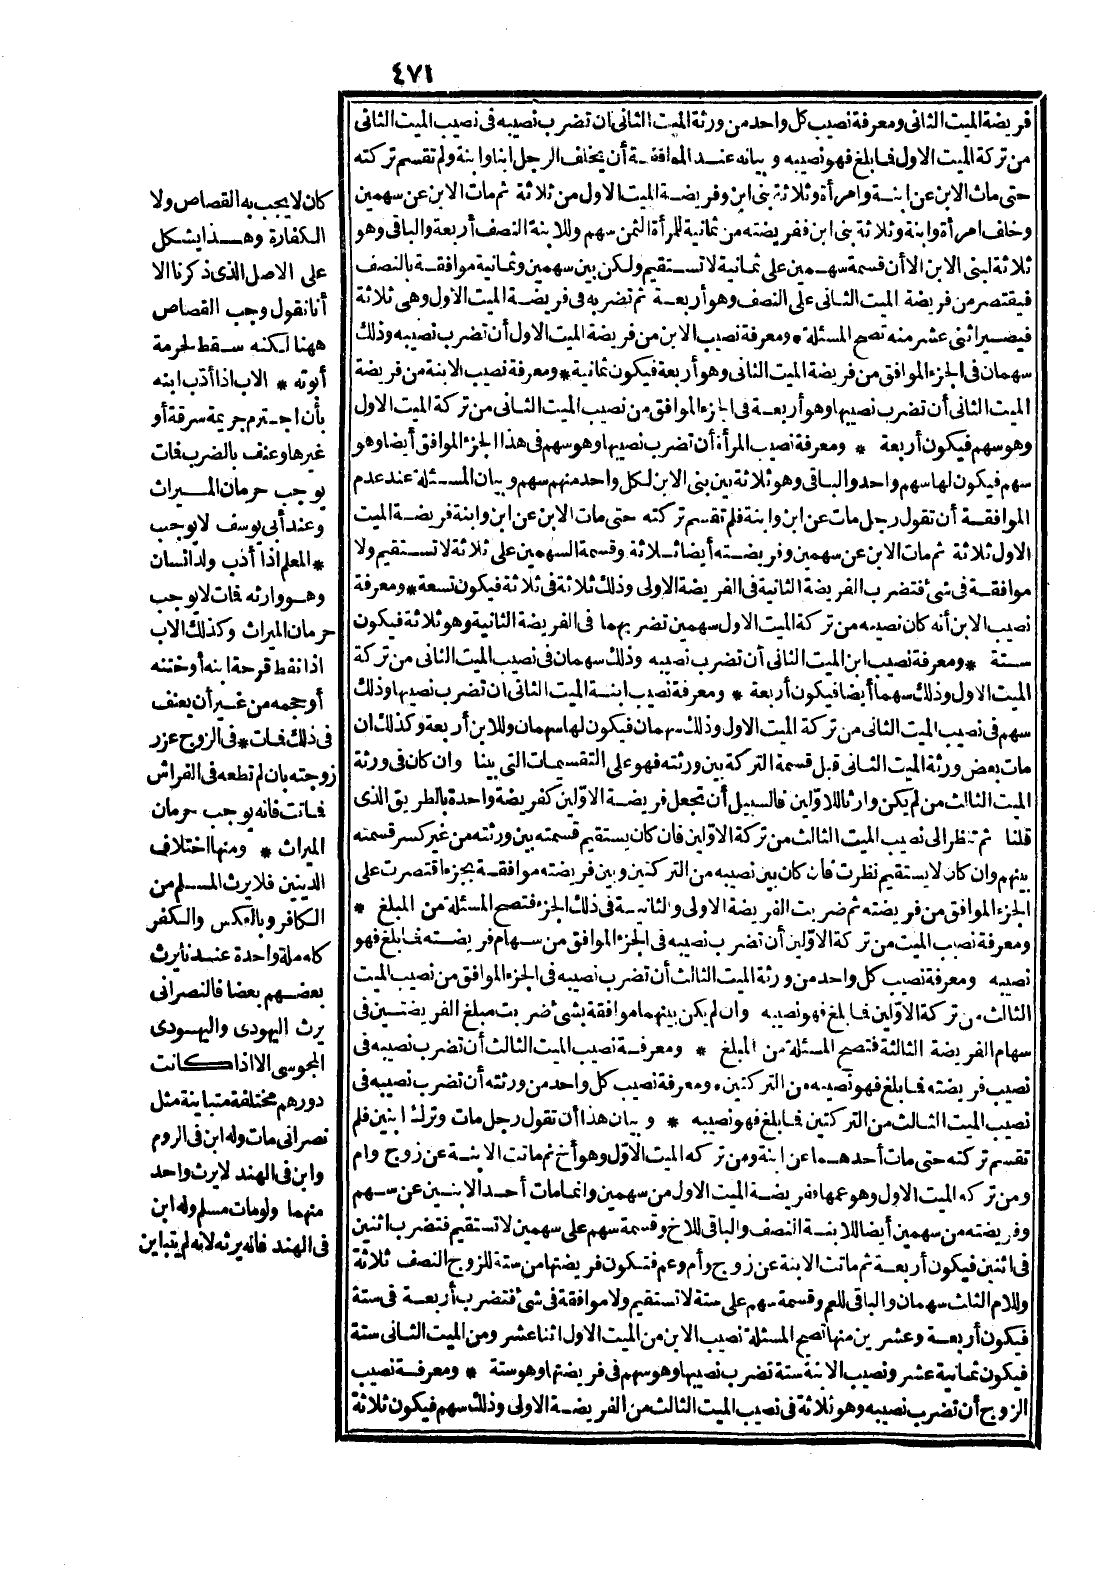 ٤٧١
فريضة الميت الثانى ومعرفة نصيب كل واحد من ورثة الميت الثانى ان تضرب نصيبه فى نصيب الميت الثانى
من تركة الميت الاول فما بلغ فهو نصيبه و بيانه عند الموافقة أن يخلف الرجل ابنا وابنة ولم تقسم تركته
حتى مات الابن عن ابنة وامرأة وثلاثة بنى ابن وفريضة الميت الاول من ثلاثة ثم مات الابن عن سهمين
وخلف امرأة وابنة وثلاثة بنى ابن ففريضته من ثمانية للمرأة الثمن سهم وللابنة النصف أربعة والباقى وهو
ثلاثة لبنى الابن الا أن قسمة سهمين على ثمانية لا تستقيم ولكن بين سهمين وثمانية موافقة بالنصف
فيقتصر من فريضة الميت الثانى على النصف وهو أربعة ثم تضربه فى فريضة الميت الاول وهى ثلاثة
فيصير اثنى عشر منه تصح المسئلة * ومعرفة نصيب الابن من فريضة الميت الاول أن تضرب نصيبه وذلك
سهمان فى الجزء الموافق من فريضة الميت الثانى وهو أربعة فيكون ثمانية * ومعرفة نصيب الابنة من فريضة
الميت الثانى أن تضرب نصيبها وهو أربعة فى الجزء الموافق من نصيب الميت الثانى من تركة الميت الاول
وهو سهم فيكون أربعة * ومعرفة نصيب المرأة أن تضرب نصيبها وهو سهم فى هذا الجزء الموافق أيضا وهو
سهم فيكون لها سهم واحد والباقى وهو ثلاثة بين بنى الابن لكل واحد منهم سهم و بيان المسئلة عند عدم
الموافقة أن تقول رجل مات عن ابن وابنة فلم تقسم تركته حتى مات الابن عن ابن وابنة فريضة الميت
الاول ثلاثة ثم مات الابن عن سهمين وفريضته أيضا ثلاثة وقسمة السهمين على ثلاثة لا تستقيم ولا
موافقة فى شئ فتضرب الفريضة الثانية فى الفريضة الاولى وذلك ثلاثة فى ثلاثة فيكون تسعة * ومعرفة
نصيب الابن أنه كان نصيبه من تركة الميت الاول سهمين تضربهما فى الفريضة الثانية وهو ثلاثة فيكون
ستة * ومعرفة نصيب ابن الميت الثانى أن تضرب نصيبه وذلك سهمان فى نصيب الميت الثانى من تركة
الميت الاول وذلك سهما أيضا فيكون أربعة * ومعرفة نصيب ابنة الميت الثانى ان تضرب نصيبها وذلك
سهم فى نصيب الميت الثانى من تركة الميت الاول وذلك سهمان فيكون لها سهمان وللابن أربعة وكذلك ان
مات بعض ورثة الميت الثانى قبل قسمة التركة بين ورثته فهو على التقسيمات التى بينا وان كان فى ورثة
الميت الثالث من لم يكن وارثا للاوّلين فالسبيل أن تجعل فريضة الاوّلين كفريضة واحدة بالطريق الذى
قلنا ثم تنظر الى نصيب الميت الثالث من تركة الاوّلين فان كان يستقيم قسمته بين ورثته من غير كسر قسمته
بينهم وان كان لا يستقيم نظرت فان كان بين نصيبه من التركتين وبين فريضته موافقة بجزء اقتصرت على
الجزء الموافق من فريضته ثم ضربت الفريضة الاولى والثانية فى ذلك الجزء فتصح المسئلة من المبلغ *
ومعرفة نصيب الميت من تركة الاوّلين أن تضرب نصيبه فى الجزء الموافق من سهام فريضته فما بلغ فهو
نصيبه ومعرفة نصيب كل واحد من ورثة الميت الثالث أن تضرب نصيبه فى الجزء الموافق من نصيب الميت
الثالث من تركة الاوّلين فما بلغ فهو نصيبه وان لم يكن بينهما موافقة بشئ ضربت مبلغ الفريضتين فى
سهام الفريضة الثالثة فتصح المسئلة من المبلغ * ومعرفة نصيب الميت الثالث أن تضرب نصيبه فى
نصيب فريضته فما بلغ فهو نصيبه من التركتين * ومعرفة نصيب كل واحد من ورثته أن تضرب نصيبه فى
نصيب الميت الثالث من التركتين فما بلغ فهو نصيبه * و بيان هذا أن تقول رجل مات وترك ابنين فلم
تقسم تركته حتى مات أحدهما عن ابنة ومن تركه الميت الاوّل وهو أخ ثم ماتت الابنة عن زوج وام
ومن تركه الميت الاول وهو عمها ففريضة الميت الاول من سهمين وانما مات أحد الابنين عن سهم
وفريضته من سهمين أيضا للابنة النصف والباقى للاخ وقسمة سهم على سهمين لا تستقيم فتضرب اثنين
فى اثنين فيكون أربعة ثم ماتت الابنة عن زوج وأم وعم فتكون فريضتها من ستة للزوج النصف ثلاثة
وللام الثلث سهمان والباقى للعم وقسمة سهم على ستة لا تستقيم ولا موافقة فى شئ فتضرب أربعة فى ستة
فيكون أربعة وعشرين منها تصح المسئلة نصيب الابن من الميت الاول اثنا عشر ومن الميت الثانى ستة
فيكون ثمانية عشر ونصيب الابنة ستة تضرب نصيبها وهو سهم فى فريضتها وهو ستة * ومعرفة نصيب
الزوج أن تضرب نصيبه وهو ثلاثة فى نصيب الميت الثالث من الفريضة الاولى وذلك سهم فيكون ثلاثة
كان لا يجب به القصاص ولا
الكفارة وهذا يشكل
على الاصل الذى ذكرنا الا
أنا نقول وجب القصاص
ههنا لكنه سقط لحرمة
أبوته * الاب اذا أدّب ابنه
بأن اجترم جريمة سرقة أو
غيرها وعنف بالضرب فمات
يوجب حرمان الميراث
وعند أبى يوسف لا يوجب
* المعلم اذا أدّب ولد انسان
وهو وارثه فمات لا يوجب
حرمان الميراث وكذلك الاب
اذا نقط قرحة ابنه أو ختنه
أو حجمه من غير أن يعنف
فى ذلك فمات * فى الزوج عزر
زوجته بان لم تطعه فى الفراش
فماتت فانه يوجب حرمان
الميراث * ومنها اختلاف
الدينين فلا يرث المسلم من
الكافر وبالعكس والكفر
كله ملة واحدة عندنا يرث
بعضهم بعضا فالنصرانى
يرث اليهودى واليهودى
المجوسى الا اذا كانت
دورهم مختلفة متباينة مثل
نصرانى مات وله ابن فى الروم
وابن فى الهند لا يرث واحد
منهما ولو مات مسلم وله ابن
فى الهند فانه يرثه لانه لم يتباين